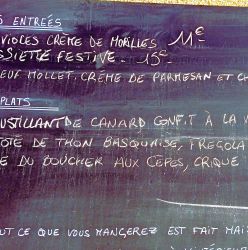 S ENTREÉS
VIOLES CRÈME DE MORILLES 11€
SSIETTE FESTIVE - 13€
EUF MOLLET, CRÈME DE PARMESAN ET CH
PLATS
OUSTILLANT DE CANARD CONFIT À LA
OTE DE THON BASQUAISE, FREGOLA
E DU BOUCHER AUX CÈPES, CRIQUE
OUT CE QUE VOUS MANGEREZ EST FAIT MAIS